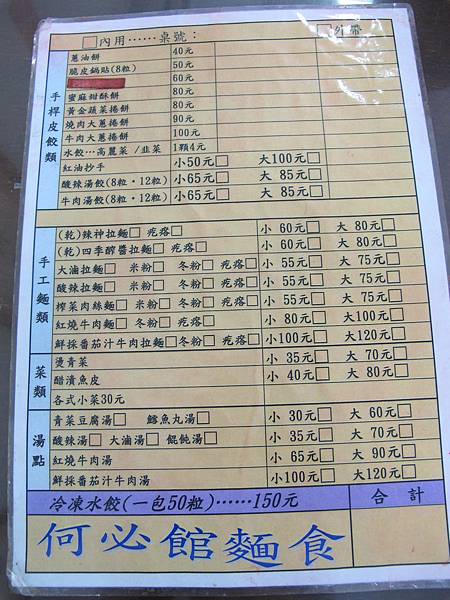 □內用……桌號： □外帶
手桿皮餃類
蔥油餅 40元
脆皮鍋貼(8粒) 50元
60元
蜜麻甜酥餅 80元
黃金蔬菜捲餅 80元
燒肉大蔥捲餅 90元
牛肉大蔥捲餅 100元
水餃…高麗菜 /韭菜 1顆4元
紅油抄手 小50元□ 大100元□
酸辣湯餃(8粒·12粒) 小65元□ 大 85元□
牛肉湯餃(8粒·12粒) 小65元□ 大 85元□
手工麵類
(乾)辣神拉麵□ 疙瘩□ 小 60元□ 大 80元□
(乾)四季醇醬拉麵□ 疙瘩□ 小 60元□ 大 80元□
大滷拉麵□ 米粉□ 冬粉□ 疙瘩□ 小 55元□ 大 75元□
酸辣拉麵□ 米粉□ 冬粉□ 疙瘩□ 小 55元□ 大 75元□
榨菜肉絲麵□ 米粉□ 冬粉□ 疙瘩□ 小 55元□ 大 75元□
紅燒牛肉麵□ 冬粉□ 疙瘩□ 小 80元□ 大100元□
鮮採番茄汁牛肉拉麵□冬粉□ 疙瘩□ 小100元□ 大120元□
菜類
燙青菜 小 35元□ 大 70元□
醋漬魚皮 小 40元□ 大 80元□
各式小菜30元
湯點
青菜豆腐湯□ 鱈魚丸湯□ 小 30元□ 大 60元□
酸辣湯□ 大滷湯□ 餛飩湯□ 小 35元□ 大 70元□
紅燒牛肉湯 小 65元□ 大 90元□
鮮採番茄汁牛肉湯 小100元□ 大120元□
冷凍水餃(一包50粒)……150元 合計
何必館麵食